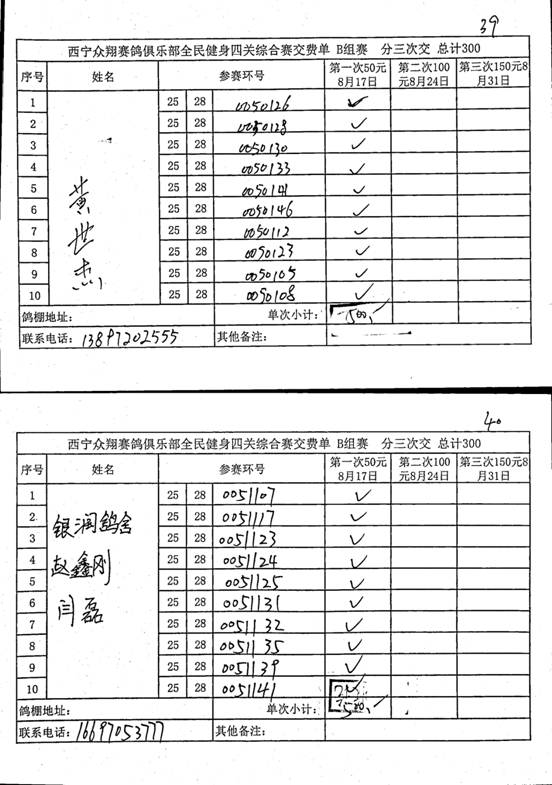 39
西宁众翔赛鸽俱乐部全民健身四关综合赛交费单 B组赛 分三次交 总计300
序号 姓名 参赛环号 第一次50元8月17日 第二次100元8月24日 第三次150元8月31日
黄世杰
1 25 28 0050126 ✓
2 25 28 0050128 ✓
3 25 28 0050130 ✓
4 25 28 0050133 ✓
5 25 28 0050141 ✓
6 25 28 0050146 ✓
7 25 28 0050112 ✓
8 25 28 0050123 ✓
9 25 28 0050105 ✓
10 25 28 0050108 ✓
鸽棚地址: 单次小计: 500
联系电话: 13897202555 其他备注:
40
西宁众翔赛鸽俱乐部全民健身四关综合赛交费单 B组赛 分三次交 总计300
序号 姓名 参赛环号 第一次50元8月17日 第二次100元8月24日 第三次150元8月31日
银润鸽舍
赵鑫刚
闫磊
1 25 28 0051107 ✓
2 25 28 0051117 ✓
3 25 28 0051123 ✓
4 25 28 0051124 ✓
5 25 28 0051125 ✓
6 25 28 0051131 ✓
7 25 28 0051132 ✓
8 25 28 0051135 ✓
9 25 28 0051139 ✓
10 25 28 0051141 ✓
鸽棚地址: 单次小计: 500
联系电话: 16697053777 其他备注: